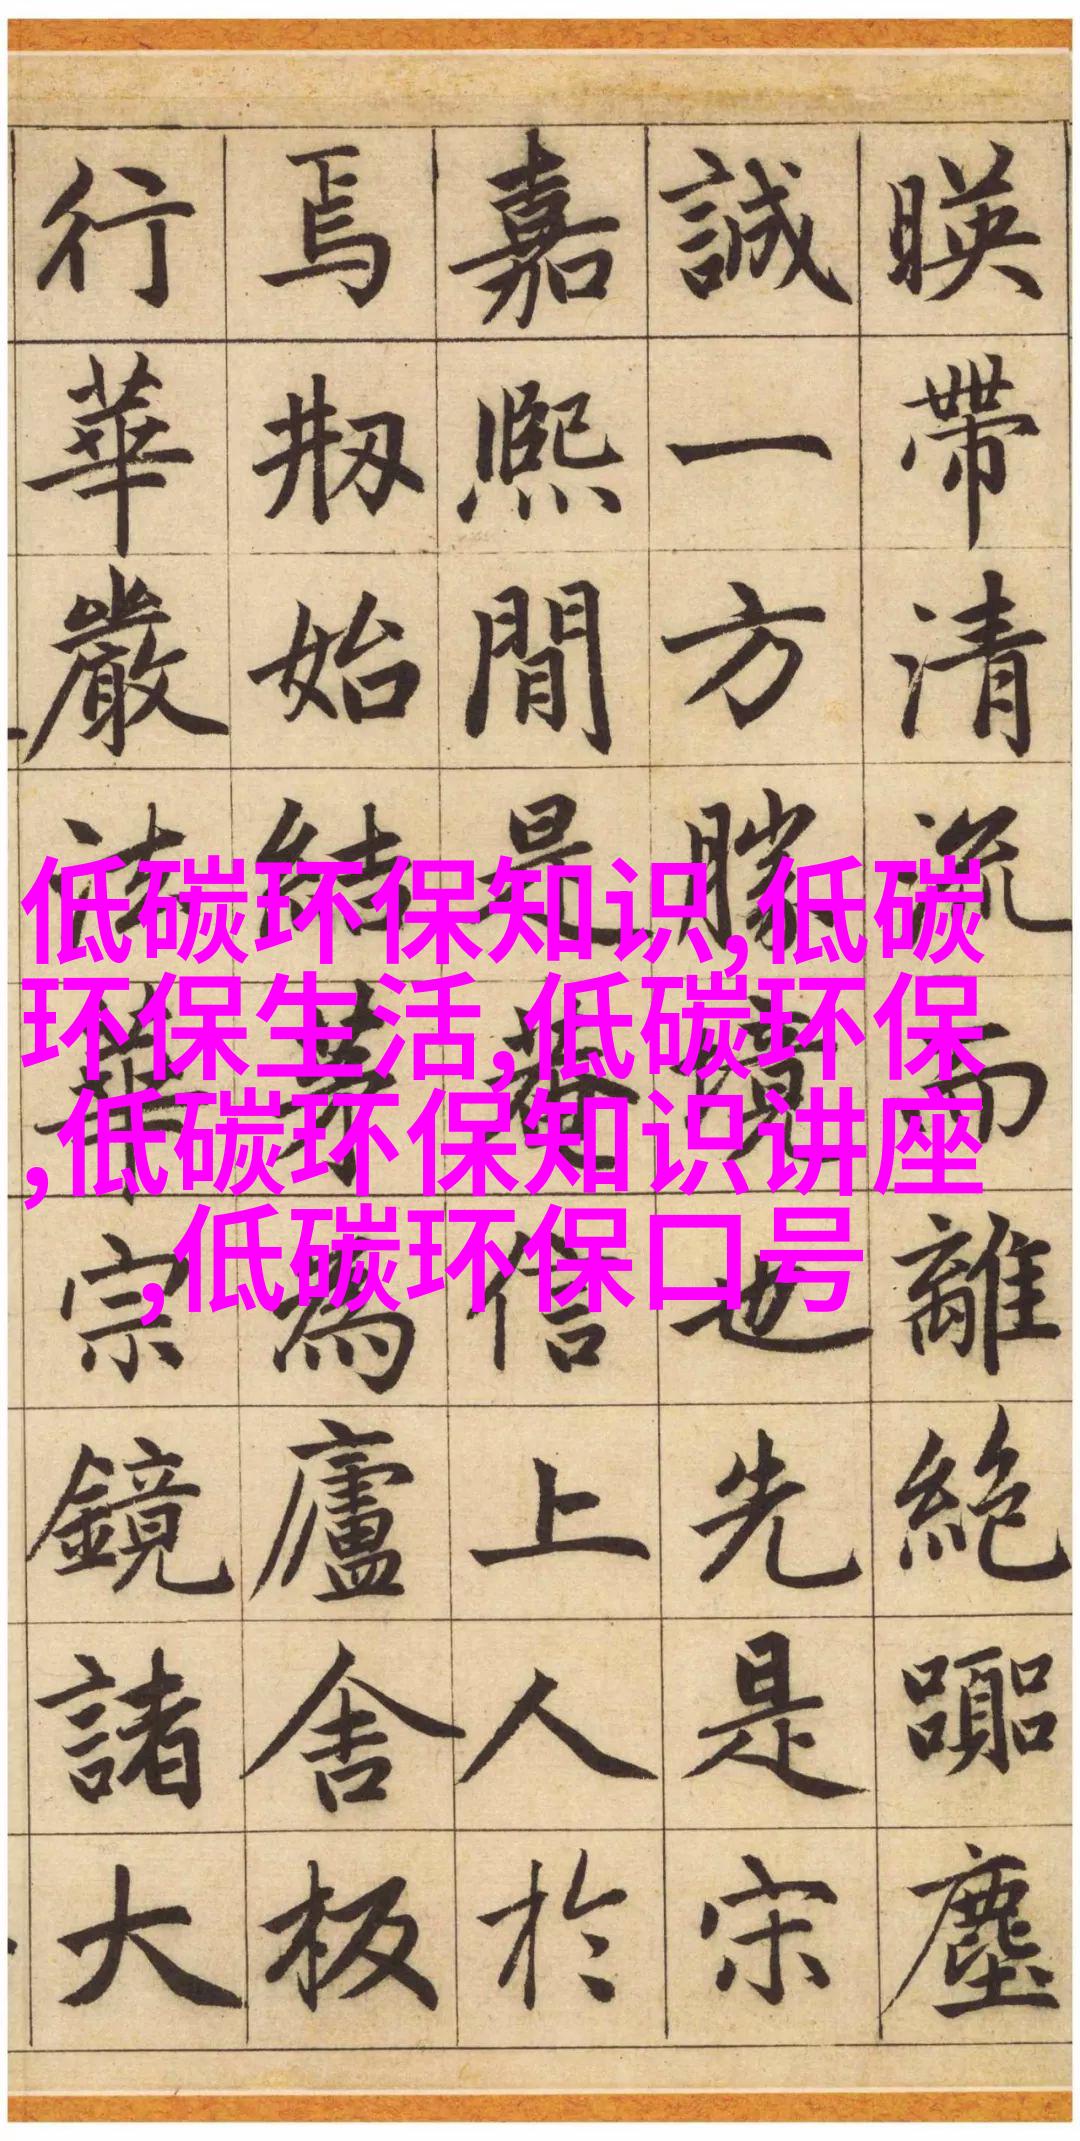 暎帶清流而離絶嚚塵
誠一方勝境也先是宋
嘉熙間是菴信上人於
焉剏始結茅為廬舍板
行華嚴法華宗鏡諸大
低碳环保知识,低碳
环保生活,低碳环保
,低碳环保知识讲座
,低碳环保口号